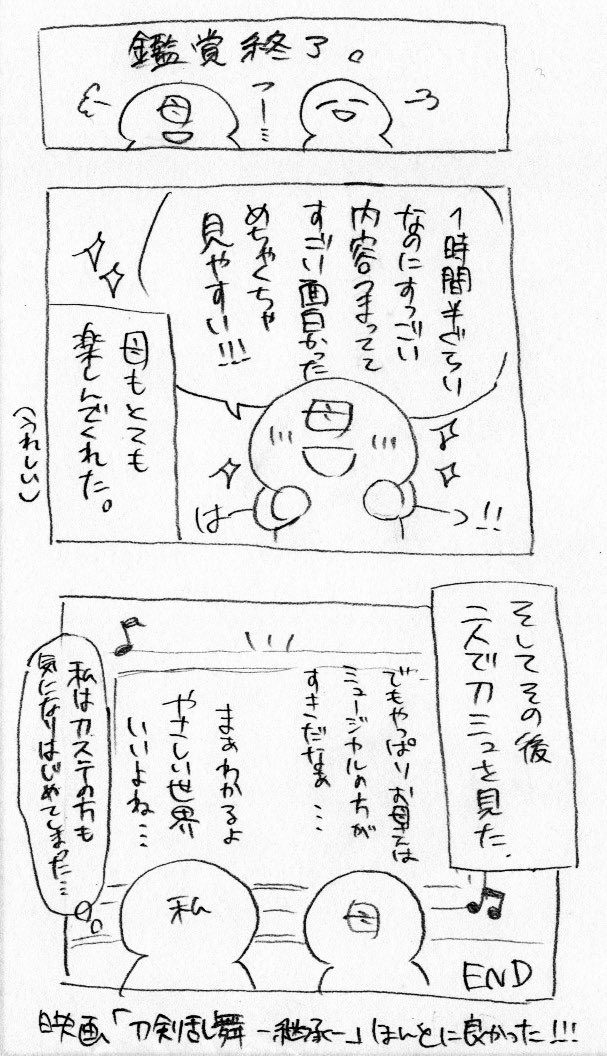 鑑賞終了。
母
つーミ
1時間半ぐらい
なのにすっごい
内容つまってて
すごい面白かった
めちゃくちゃ
見やすい!!!
母
はーっ!!
母もとても
楽しんでくれた。
(うれしい)
そしてその後
二人で刀ミュを見た.
でもやっぱりお母さんは
ミュージカルの方が
すきだなぁ…
まぁわかるよ
やさしい世界
いいよね…
私は刀ステの方も
気になりはじめてしまった…
私
母
END
映画「刀剣乱舞-継承-」ほんとに良かった!!!